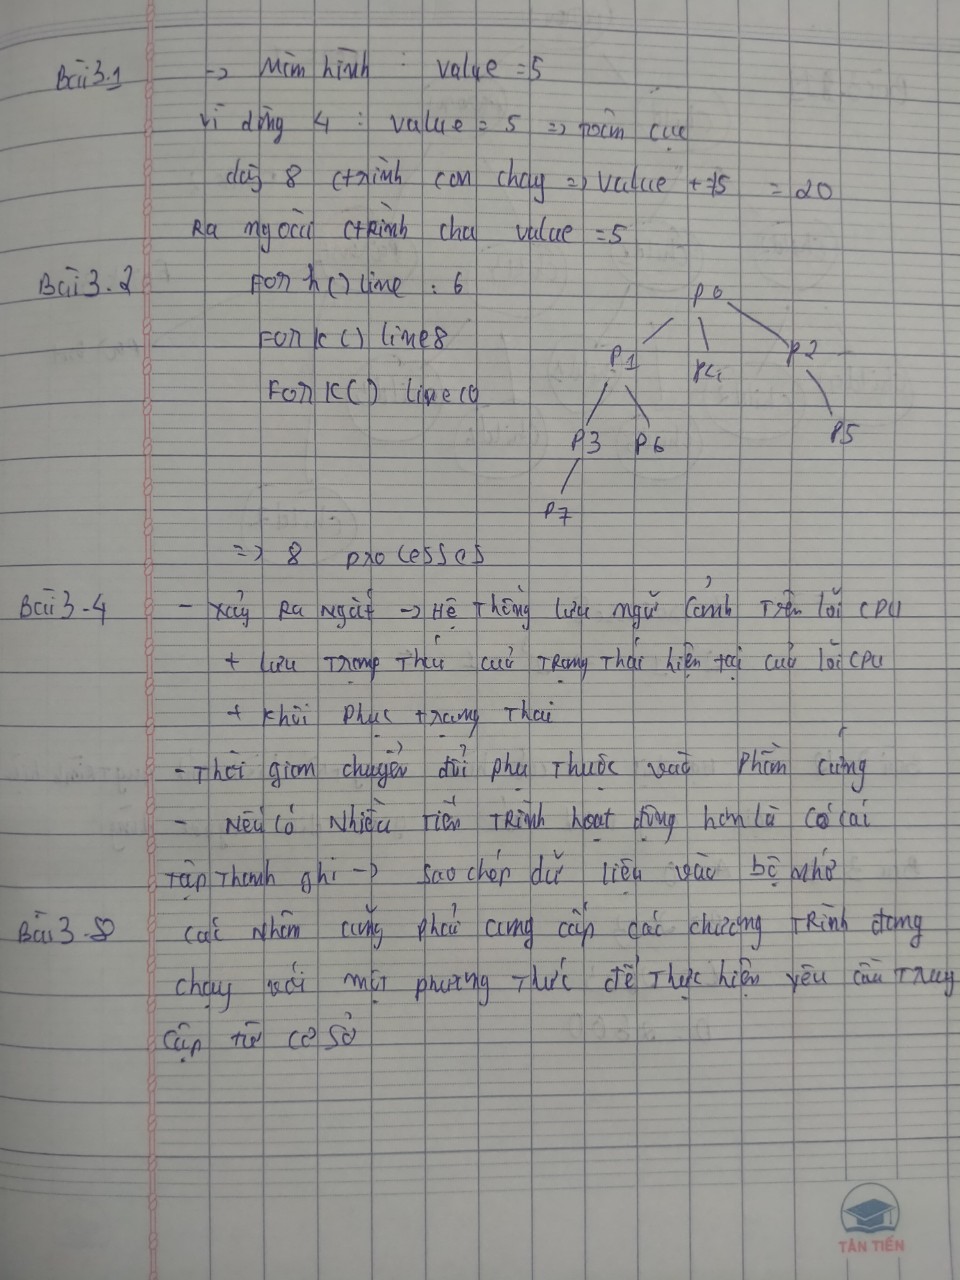 Bài 3.1 -> Màn hình : value = 5
Vì dòng 4 : value = 5 => toàn cục
dòng 8 ctrình con chạy => value + 15 = 20
Ra ngoài ctrình cha value = 5
Bài 3.2 Fork() line : 6
Fork() line 8
Fork() line 10
P0
P1 P4 P2
P3 P6 P5
P7
=> 8 processes
Bài 3-4 - Xảy Ra Ngắt -> Hệ Thống Lưu ngữ Cảnh Trên lõi CPU
+ Lưu Trạng Thái của Trạng Thái hiện tại của lõi CPU
+ Khôi phục trạng Thái
- Thời gian chuyển đổi phụ Thuộc vào Phần cứng
- Nếu Có Nhiều Tiến TRình hoạt động hơn là Có Các
Tập Thanh ghi -> Sao chép dữ liệu vào bộ Nhớ
Bài 3-8 Các Nhân cũng phải cung cấp các chương TRình đang
chạy với một phương Thức để Thực hiện yêu cầu Truy
Cập từ cơ Sở
TÂN TIẾN